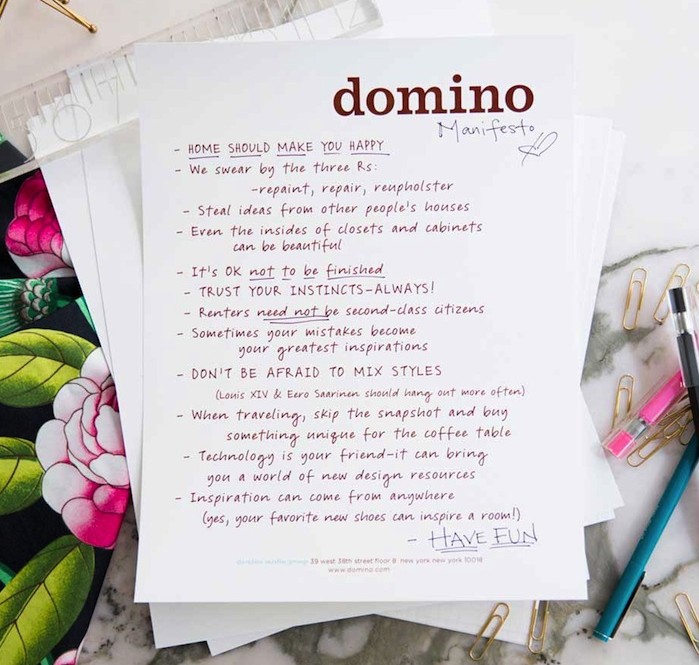 domino
Manifesto
- HOME SHOULD MAKE YOU HAPPY
- We swear by the three Rs:
-repaint, repair, reupholster
- Steal ideas from other people's houses
- Even the insides of closets and cabinets
can be beautiful
- It's OK not to be finished
- TRUST YOUR INSTINCTS-ALWAYS!
- Renters need not be second-class citizens
- Sometimes your mistakes become
your greatest inspirations
- DON'T BE AFRAID TO MIX STYLES
(Louis XIV & Eero Saarinen should hang out more often)
- When traveling, skip the snapshot and buy
something unique for the coffee table
- Technology is your friend-it can bring
you a world of new design resources
- Inspiration can come from anywhere
(yes, your favorite new shoes can inspire a room!)
- HAVE FUN
media group 39 west 38th street floor 8 new york new york 10018
www.domino.com